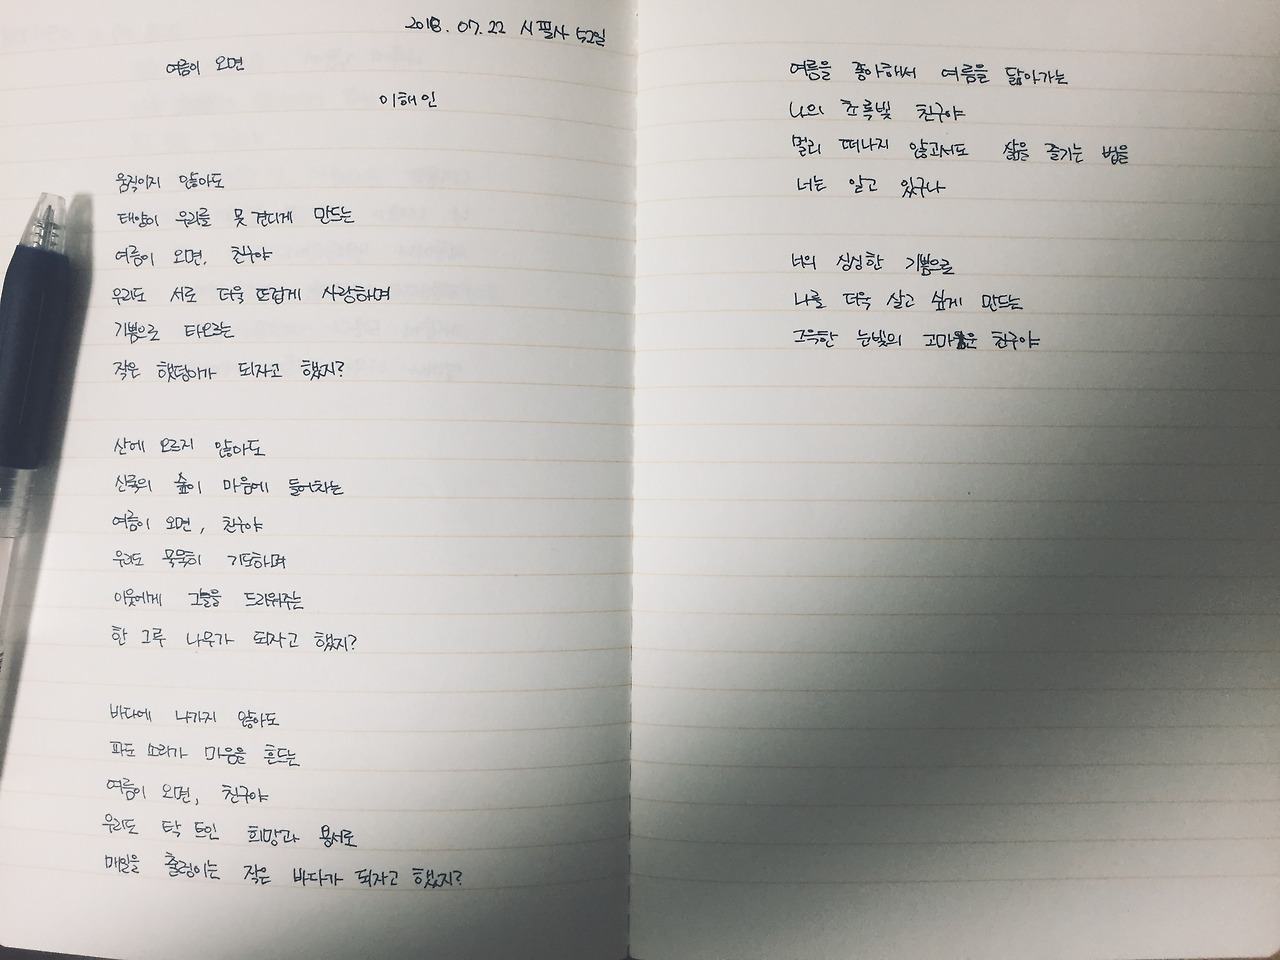 2018. 07. 22 시필사 52일
여름이 오면
이해인
움직이지 않아도
태양이 우리를 못 견디게 만드는
여름이 오면, 친구야
우리도 서로 더욱 뜨겁게 사랑하며
기쁨으로 타오르는
작은 햇덩이가 되자고 했지?
산에 오르지 않아도
신록의 숲이 마음에 들어차는
여름이 오면, 친구야
우리도 묵묵히 기도하며
이웃에게 그늘을 드리워주는
한 그루 나무가 되자고 했지?
바다에 나가지 않아도
파도 소리가 마음을 흔드는
여름이 오면, 친구야
우리도 탁 트인 희망과 용서로
매일을 출렁이는 작은 바다가 되자고 했지?
여름을 좋아해서 여름을 닮아가는
나의 초록빛 친구야
멀리 떠나지 않고서도 삶을 즐기는 법을
너는 알고 있구나
너의 싱싱한 기쁨으로
나를 더욱 살고 싶게 만드는
그윽한 눈빛의 고마운 친구야